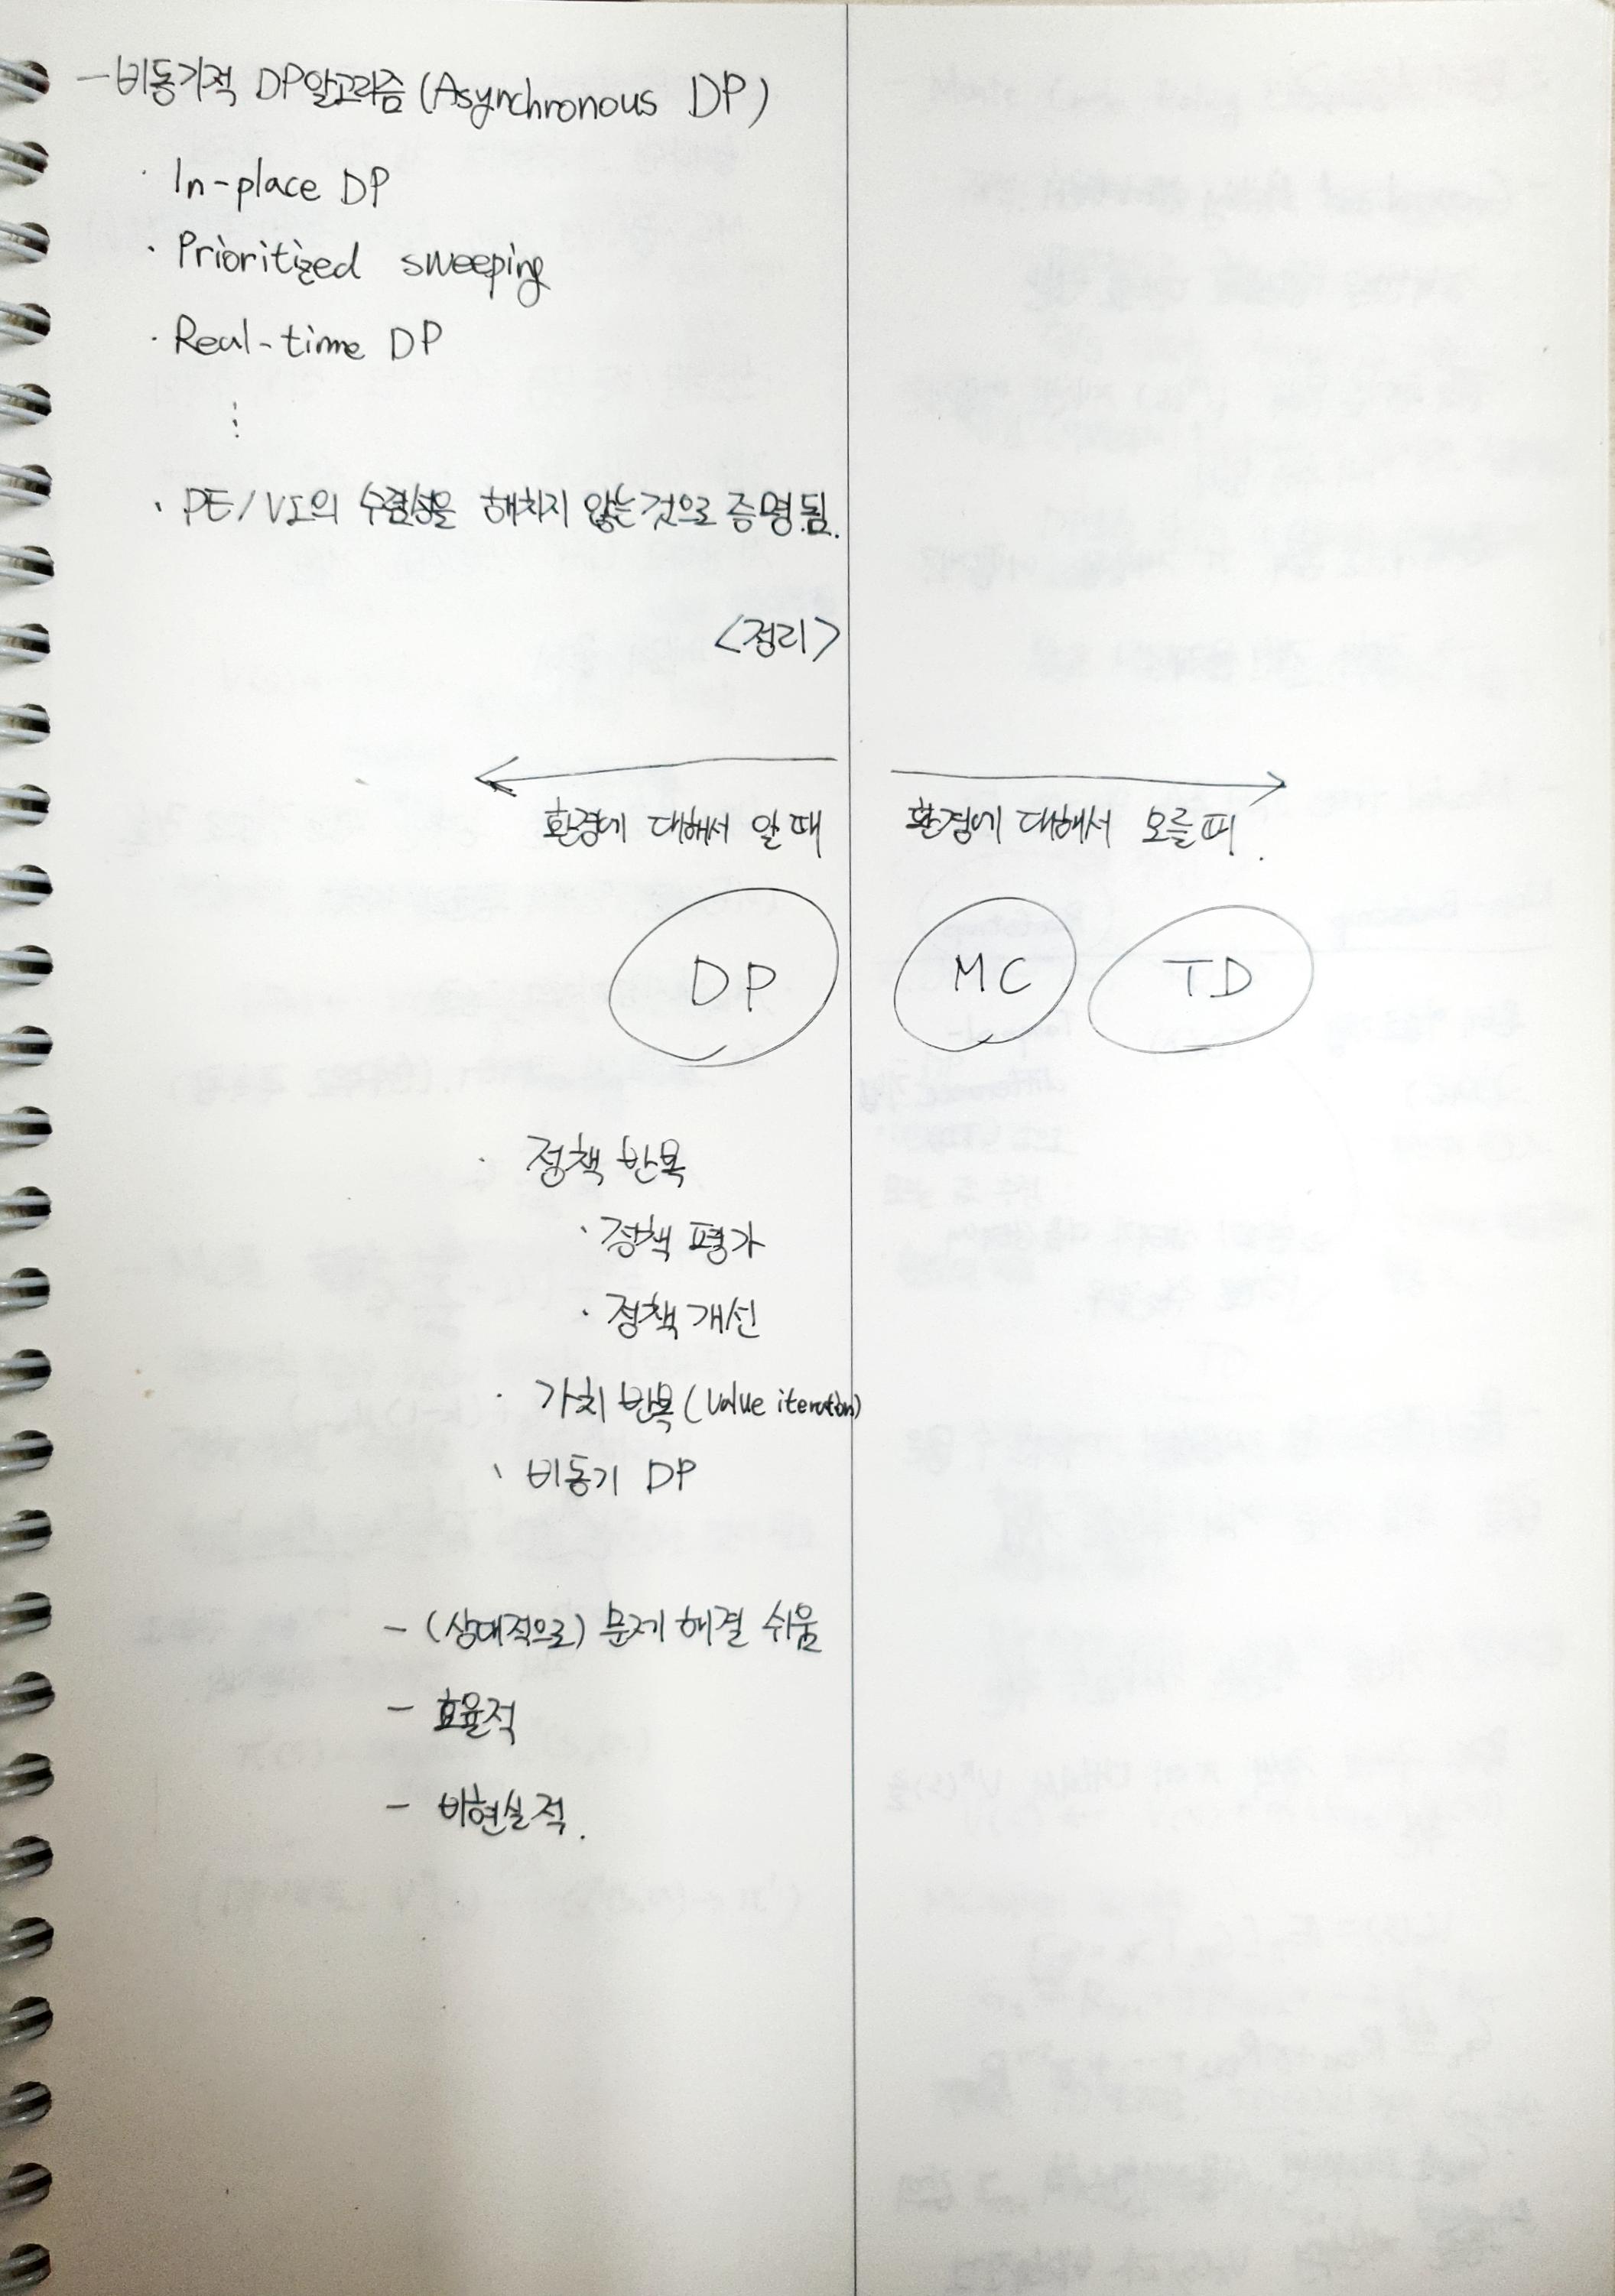 - 비동기적 DP알고리즘 (Asynchronous DP)
· In-place DP
· Prioritized sweeping
· Real-time DP
⋮
· PE/VI의 수렴성을 해치지 않는 것으로 증명됨.
<정리>
환경에 대해서 알 때
환경에 대해서 모를 때.
DP
MC
TD
· 정책 반복
· 정책 평가
· 정책 개선
· 가치 반복 (Value iteration)
· 비동기 DP
- (상대적으로) 문제 해결 쉬움
- 효율적
- 비현실적.